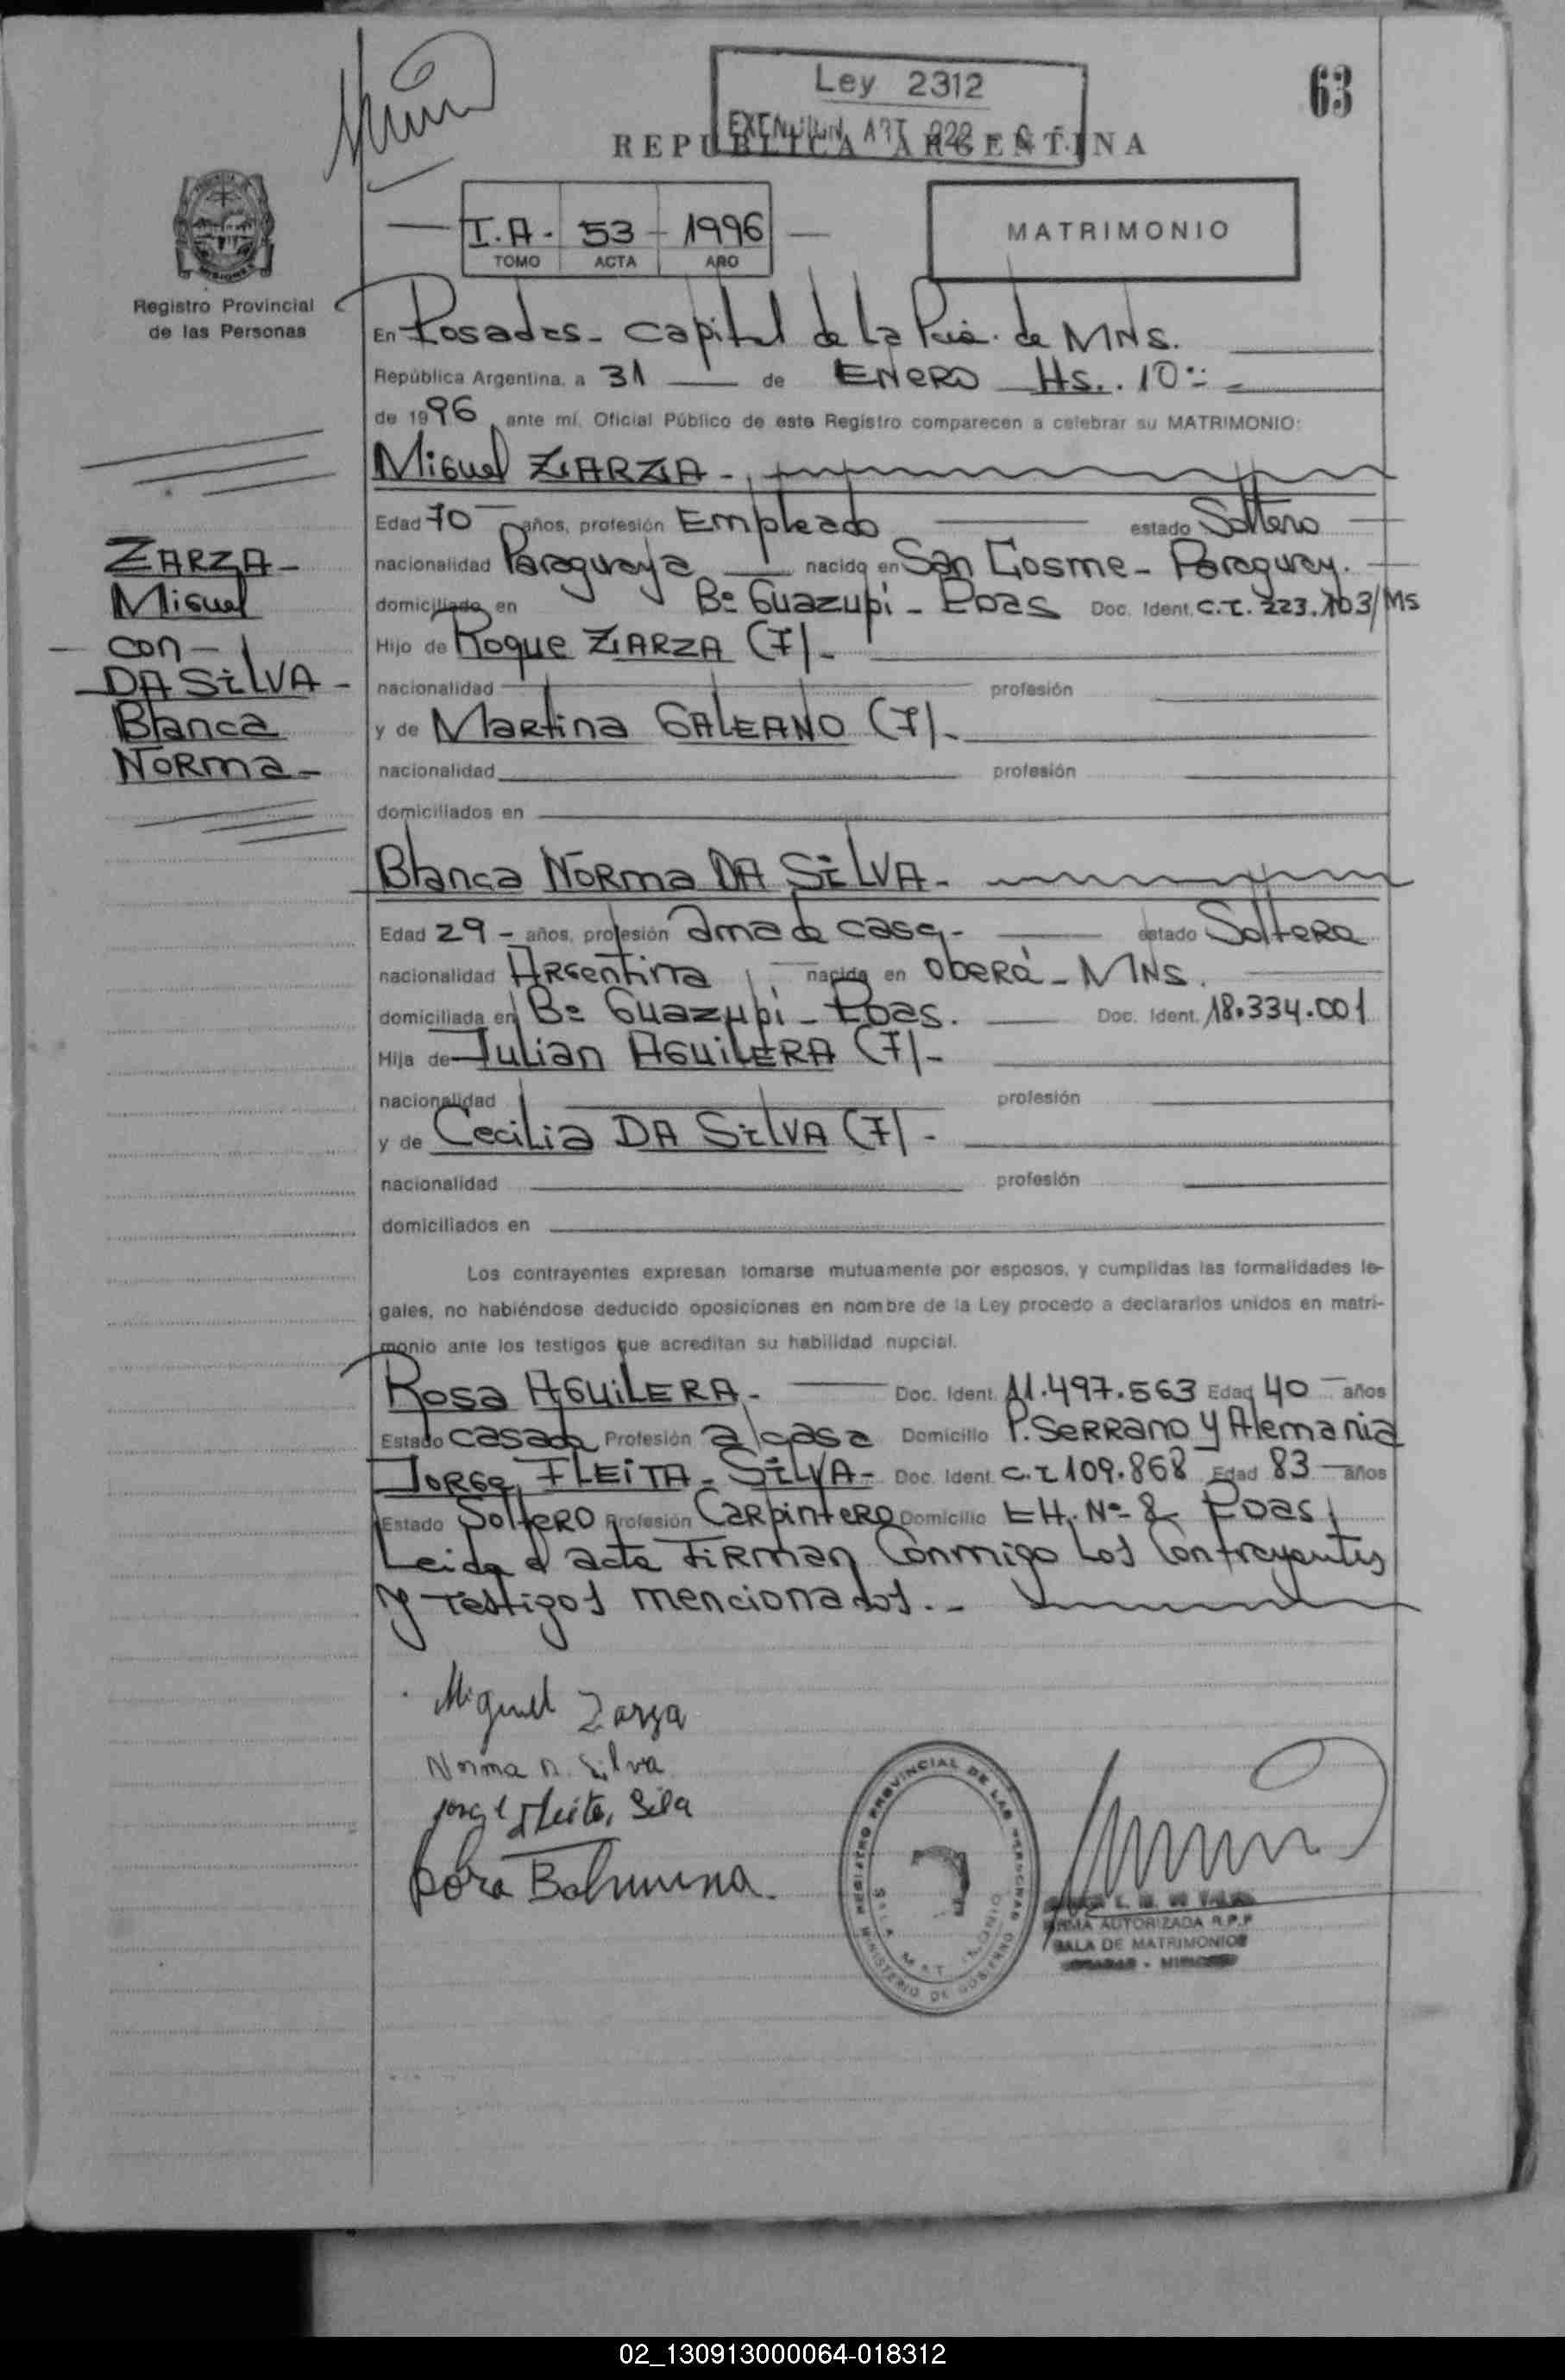 63
Ley 2312
REPUBLICA ARGENTINA
T.A. - 53 - 1996
TOMO ACTA AÑO
MATRIMONIO
Registro Provincial
de las Personas
En Posadas - Capital de la Pcia. de MNS.
República Argentina, a 31 de ENERO Hs. 10
de 1996 ante mí, Oficial Público de este Registro comparecen a celebrar su MATRIMONIO:
Miguel ZARZA -
Edad 70 años, profesión Empleado estado Soltero
nacionalidad Paraguaya nacido en San Cosme - Paraguay.
domiciliado en Bº Guazupi - Pdas Doc. Ident. C.I. 223.103/Ms
Hijo de Roque ZARZA (F) -
nacionalidad profesión
y de Martina GALEANO (F) -
nacionalidad profesión
domiciliados en
ZARZA -
Miguel
- con -
DA SILVA -
Blanca
Norma -
Blanca Norma DA SILVA -
Edad 29 - años, profesión ama de casa - estado Soltera
nacionalidad Argentina nacida en Oberá - MNS.
domiciliada en Bº Guazupi - Pdas. Doc. Ident. 18.334.001
Hija de Julian AGUILERA (F) -
nacionalidad profesión
y de Cecilia DA SILVA (F) -
nacionalidad profesión
domiciliados en
Los contrayentes expresan tomarse mutuamente por esposos, y cumplidas las formalidades le-
gales, no habiéndose deducido oposiciones en nombre de la Ley procedo a declararlos unidos en matri-
monio ante los testigos que acreditan su habilidad nupcial.
Rosa AGUILERA - Doc. Ident. 11.497.563 Edad 40 años
Estado casada Profesión a/casa Domicilio P. Serrano y Alemania
Jorge FLEITA - SILVA - Doc. Ident. C.I 109.868 Edad 83 años
Estado Soltero Profesión Carpintero Domicilio Nº 8 Pdas.
Leida el acta Firman Conmigo Los Contrayentes
y testigos mencionados. -
Miguel Zarza
Norma D. Silva
REGISTRO PROVINCIAL DE LAS PERSONAS
MINISTERIO DE GOBIERNO
FIRMA AUTORIZADA R.P.P
SALA DE MATRIMONIOS
02_130913000064-018312